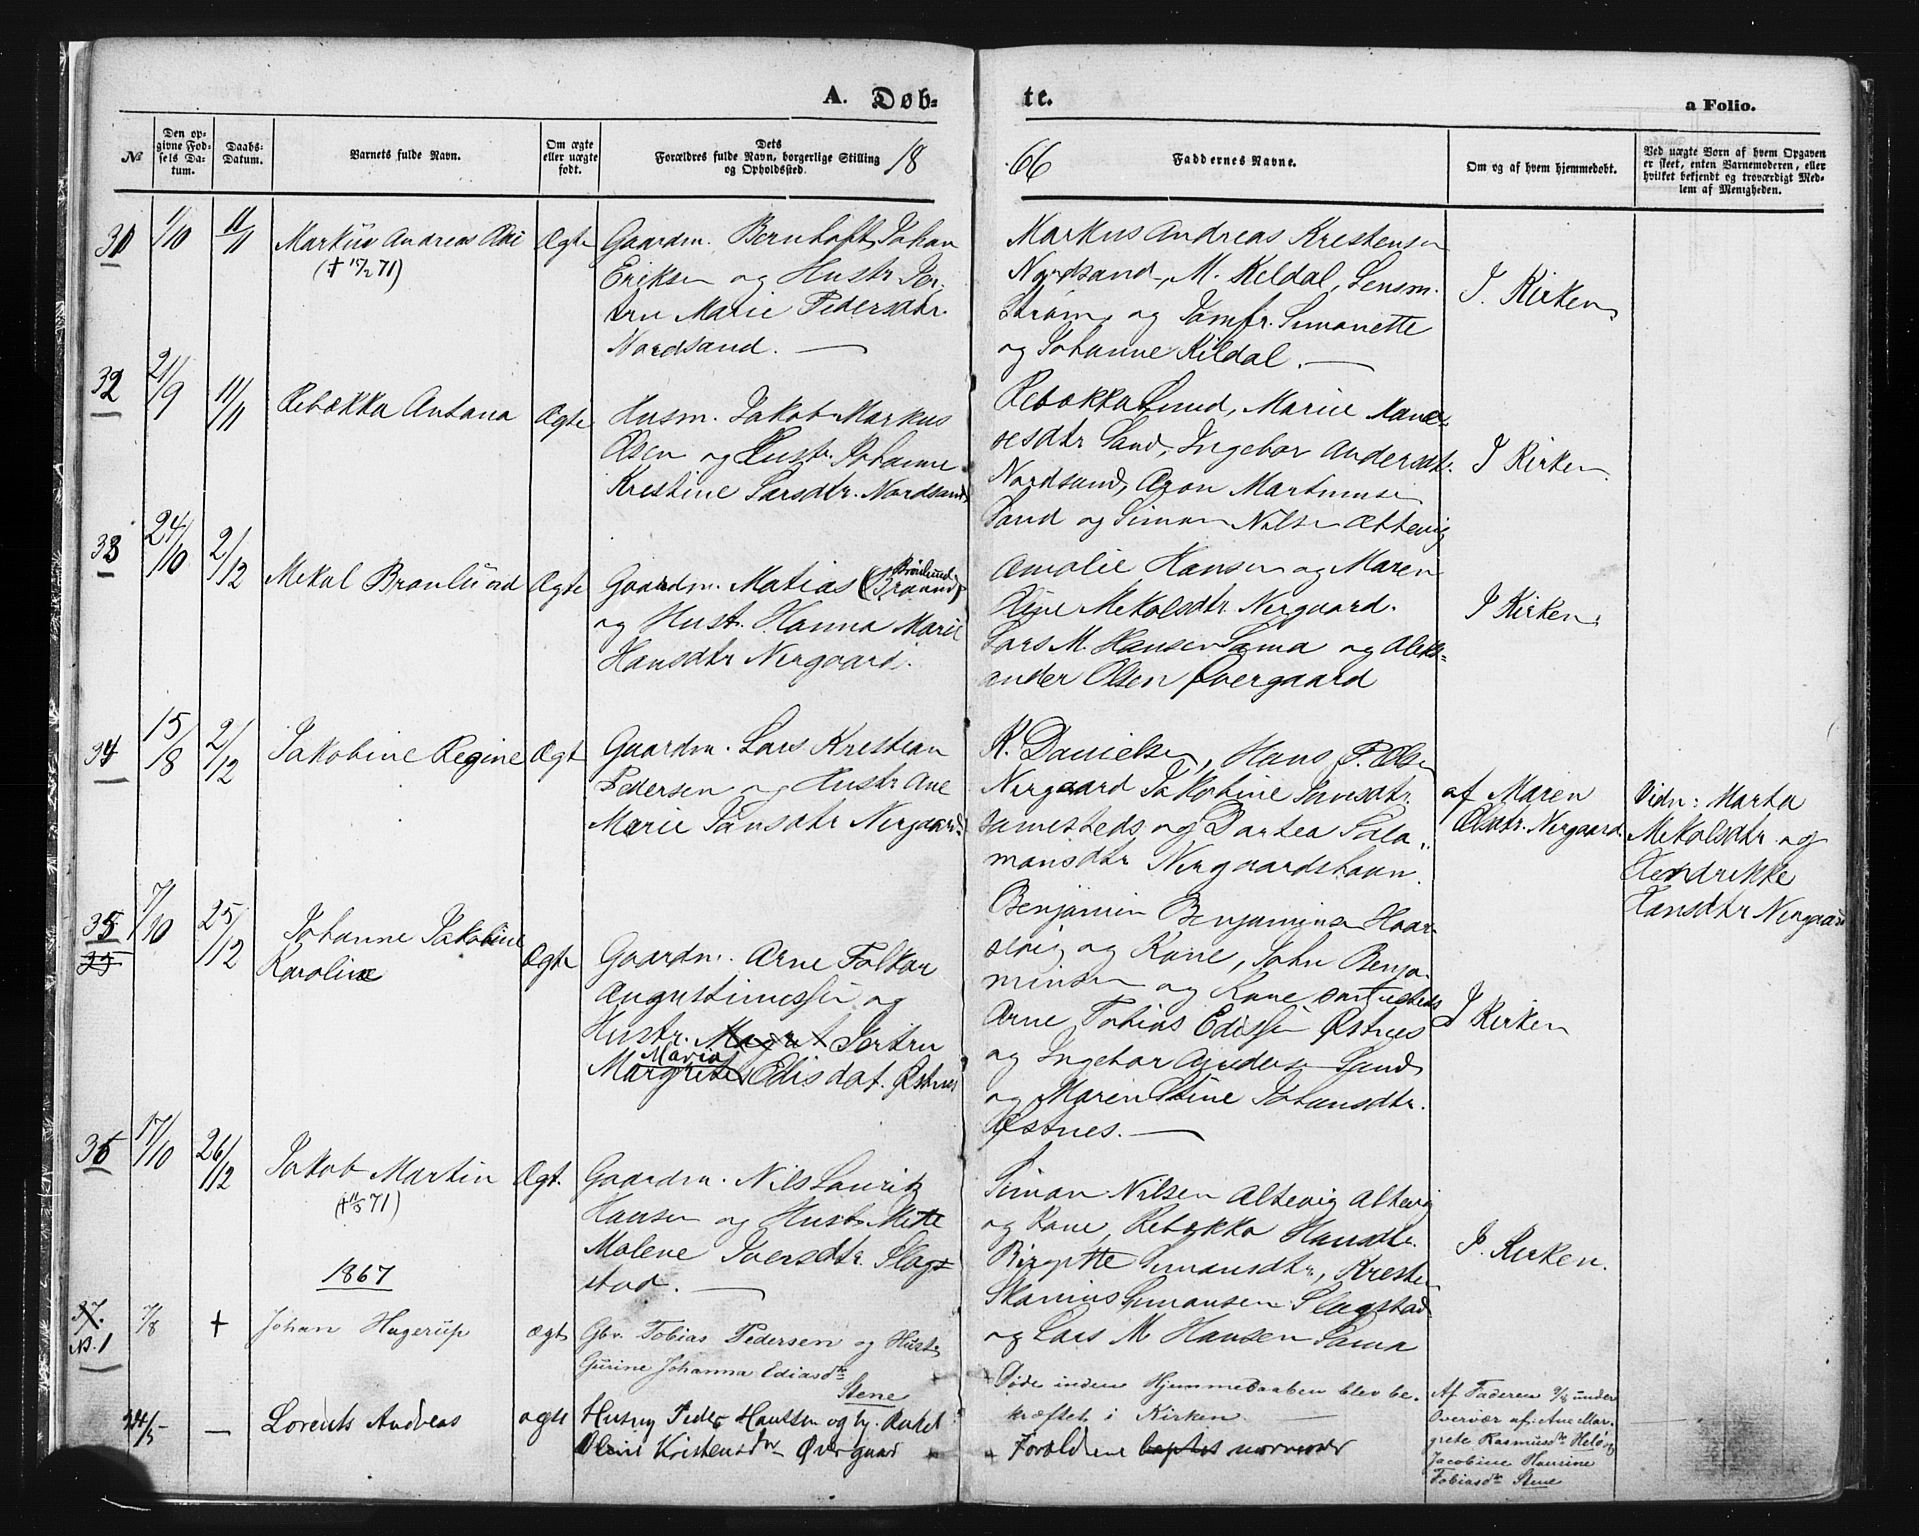 A. Døb-
te.
a Folio.
№
Den op-
givne Fød-
sels Da-
tum.
Daabs-
Datum.
Barnets fulde Navn.
Om ægte
eller uægte
født.
Dets
Forældres fulde Navn, borgerlige Stilling
og Opholdssted.
18
66
Faddernes Navne.
Om og af hvem hjemmedøbt.
Ved uægte Børn af hvem Opgaven
er skeet, enten Barnemoderen, eller
hvilket bekjendt og troværdigt Med-
lem af Menigheden.
31
1/10
11/11
Markus Andreas
(† 15/2 71)
Ægte
Gaardm. Bernhoft Johan
Eriksen og Hustr. Jer-
tru Marie Pedersdtr.
Nordsand.
Markus Andreas Kristensen
Nordsand, M. Kildal, Lensm.
Strøm, og Jomfr. Simonette
og Johanne Kildal.
I Kirken
32
21/9
11/11
Rebækka Antana
Ægte
Husm. Jakob Markus
Olsen og Hustr. Johanne
Kristine Larsdtr. Nordsand
Rebækka Lund, Marie
sesdtr. Sand, Ingebor Andersdtr.
Nordsand, Aron Martinusen
Sand og Simon Nilsen Altevig
I Kirken
33
24/10
2/12
Mekal Brønlund
Ægte
Gaardm. Matias (Brønlund)
og Hust. Hanna Marie
Hansdtr Nergaard.
Amalie Hansen og Maren
Oline Mekalsdtr. Nergaard.
Lars M. Hansen Sama og Aleks-
ander Olsen Øvergaard
I Kirken
34
15/8
2/12
Jakobine Regine
Ægt
Gaardm. Lars Krestian
Pedersen og Hustr Ane
Marie Jansdtr Nergaard.
K. Danielsen, Hans P. Olsen
Nergaard Jakobine Jansdtr.
samesteds og Dortea Sala-
monsdtr Nergaardshavn.
af Maren
Olsdtr. Nergaard
Vidn: Marta
Mekalsdtr og
Hendrikke
Hansdtr Nergaard
35
35
7/10
25/12
Johanne Jakobine
Karoline
Ægte
Gaardm. Arne Falkor
Augustinussen og
Hustr. Jertru
Maria
Margrete Edisdat. Østnes
Benjamin Benjaminsen Haar-
svig og Kone, John Benja-
minsen og Kone samesteds
Arne Tobias Edissen Østnes
og Ingebor Anders Sand
og Maren Stine Johansdtr.
Østnes.
I Kirken
36
17/10
26/12
Jakob Martin
(† 11/5 71)
Ægt.
Gaardm. Nils Lauritz
Hansen og Hustr Mette
Malene Iversdtr. Slag-
stad.
Simon Nilsen Altevig Altevig
og Kone, Rebekka Hansdtr.
Birgitte Simonsdtr, Kresten
Skanius Simonsen Slagstad
og Lars M Hansen Sama
I Kirken.
1867
37.
No. 1
7/8
+
Johan Hagerup
ægte
Gbr. Tobias Pedersen og Hustr.
Gurine Johanna Ediasdtr
Stene
+ Døde inden Hjemmedaaben blev be-
kræftet i Kirken
Af Faderen 9/8 under
Overvær af: Ane Mar-
grete Rasmusdtr Helø og
Jacobine Hansine
Tobiasdtr Stene
24/5
—
Lorents Andreas
ægte
Husmd Peder Hanssen og h. Rakel
Oline Kristensdtr Øvergaard
+
+ Forældrene